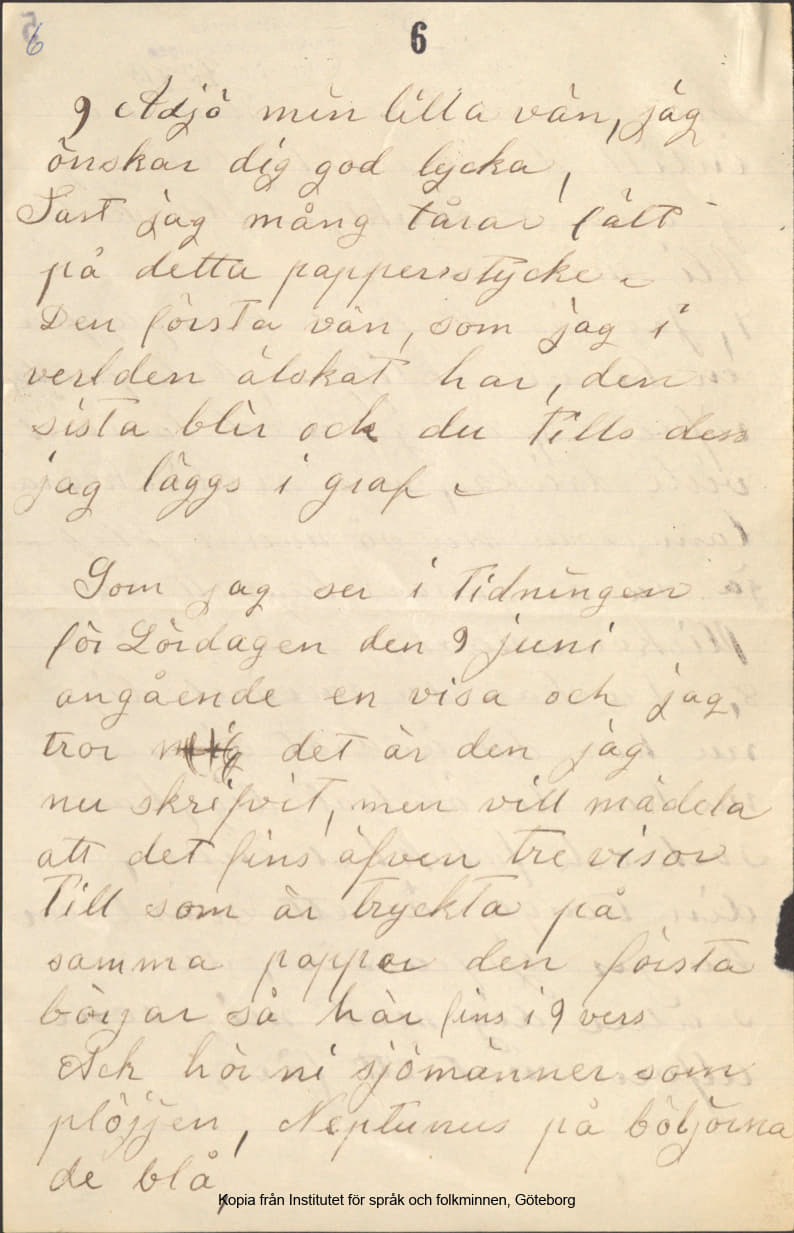 6
6
9 Adjö min lilla vän, jag
önskar dig god lycka,
Fast jag mång tårar fält
på detta pappersstycke.
Den första vän, som jag i
verlden älskat har, den
sista blir och du tills den
jag läggs i graf.
Som jag ser i tidningen
för Lördagen den 9 juni
angående en visa och jag
tror det är den jag
nu skrifvit, men vill mädela
att det fins äfven tre visor
Till som är tryckta på
samma papper den första
börjar så här fins i 9 vers
Ack hör ni sjömänner som
plöjjen, Neptunus på böljorna
de blå,
Kopia från Institutet för språk och folkminnen, Göteborg